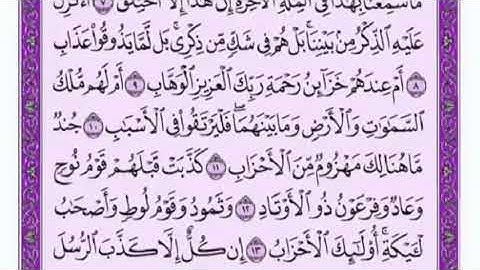 مَا سَمِعْنَا بِهَٰذَا فِي ٱلْمِلَّةِ ٱلْءَاخِرَةِ إِنْ هَٰذَآ إِلَّا ٱخْتِلَٰقٌ ٧ أَءُنزِلَ
عَلَيْهِ ٱلذِّكْرُ مِنۢ بَيْنِنَا ۚ بَلْ هُمْ فِي شَكٍّ مِّن ذِكْرِي ۖ بَل لَّمَّا يَذُوقُوا۟ عَذَابِ
٨ أَمْ عِندَهُمْ خَزَآئِنُ رَحْمَةِ رَبِّكَ ٱلْعَزِيزِ ٱلْوَهَّابِ ٩ أَمْ لَهُم مُّلْكُ
ٱلسَّمَٰوَٰتِ وَٱلْأَرْضِ وَمَا بَيْنَهُمَا ۖ فَلْيَرْتَقُوا۟ فِي ٱلْأَسْبَٰبِ ١٠ جُندٌ
مَّا هُنَالِكَ مَهْزُومٌ مِّنَ ٱلْأَحْزَابِ ١١ كَذَّبَتْ قَبْلَهُمْ قَوْمُ نُوحٍ
وَعَادٌ وَفِرْعَوْنُ ذُو ٱلْأَوْتَادِ ١٢ وَثَمُودُ وَقَوْمُ لُوطٍ وَأَصْحَٰبُ
لْـَٔيْكَةِ ۚ أُو۟لَٰٓئِكَ ٱلْأَحْزَابُ ١٣ إِن كُلٌّ إِلَّا كَذَّبَ ٱلرُّسُلَ